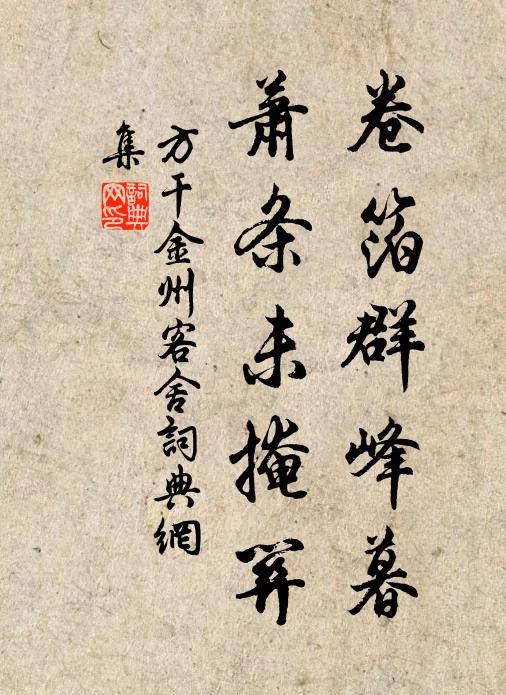 卷箔群峰暮
蕭条未掩關
方干金州客舍詞典網
集
詞典网印